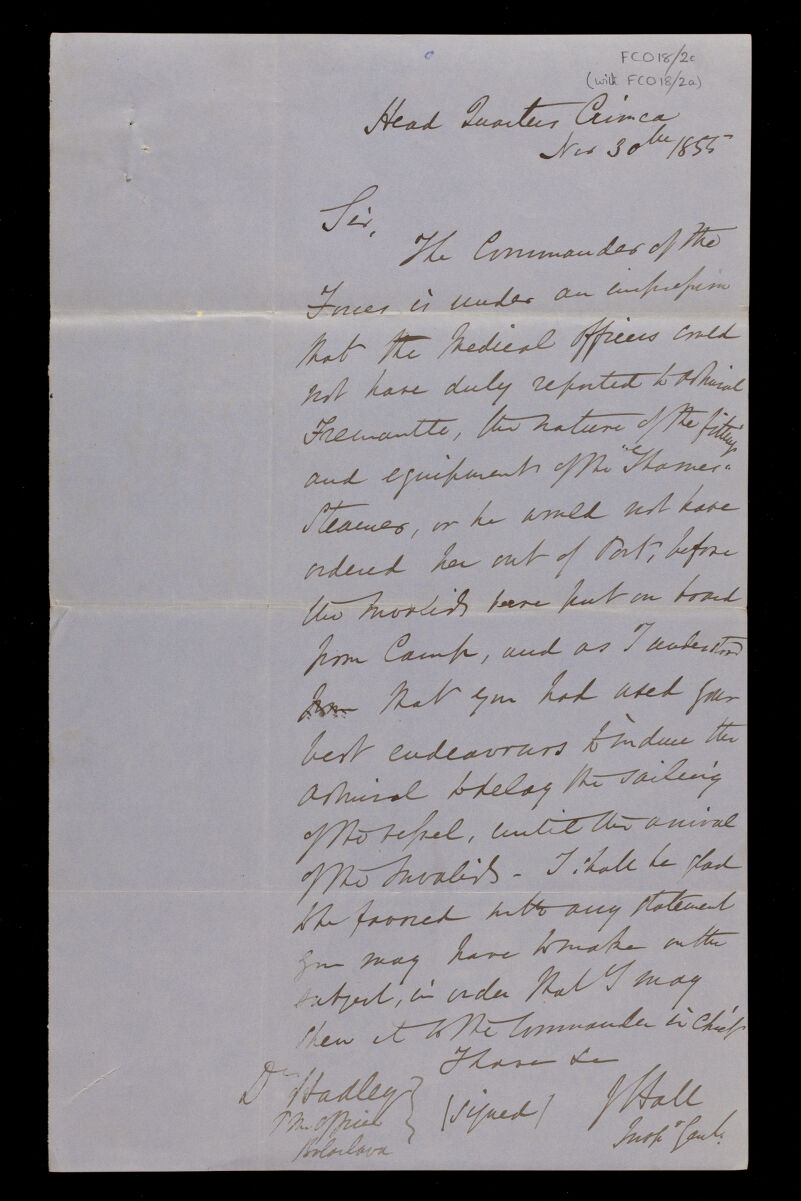 FCO18/2c
(with FCO18/2a)
Head Quarters Crimea
Nov 30th 1855
Sir,
The Commander of the
Forces is under an impression
that the Medical Officers could
not have duly reported to Admiral
Fremantle, the nature of the fittings
and equipment of the "Thames"
Steamer, or he would not have
ordered her out of Port, before
the Invalids were put on board
from Camp, and as I understood
from that you had used your
best endeavours to induce the
Admiral to delay the sailing
of the vessel, until the arrival
of the Invalids - I shall be glad
to be favored with any statement
you may have to make on the
subject, in order that I may
shew it to the Commander in Chief
I have &c
Dr Hadley
P M Officer
Balaclava
(signed) J Hall
Inspr Genl.